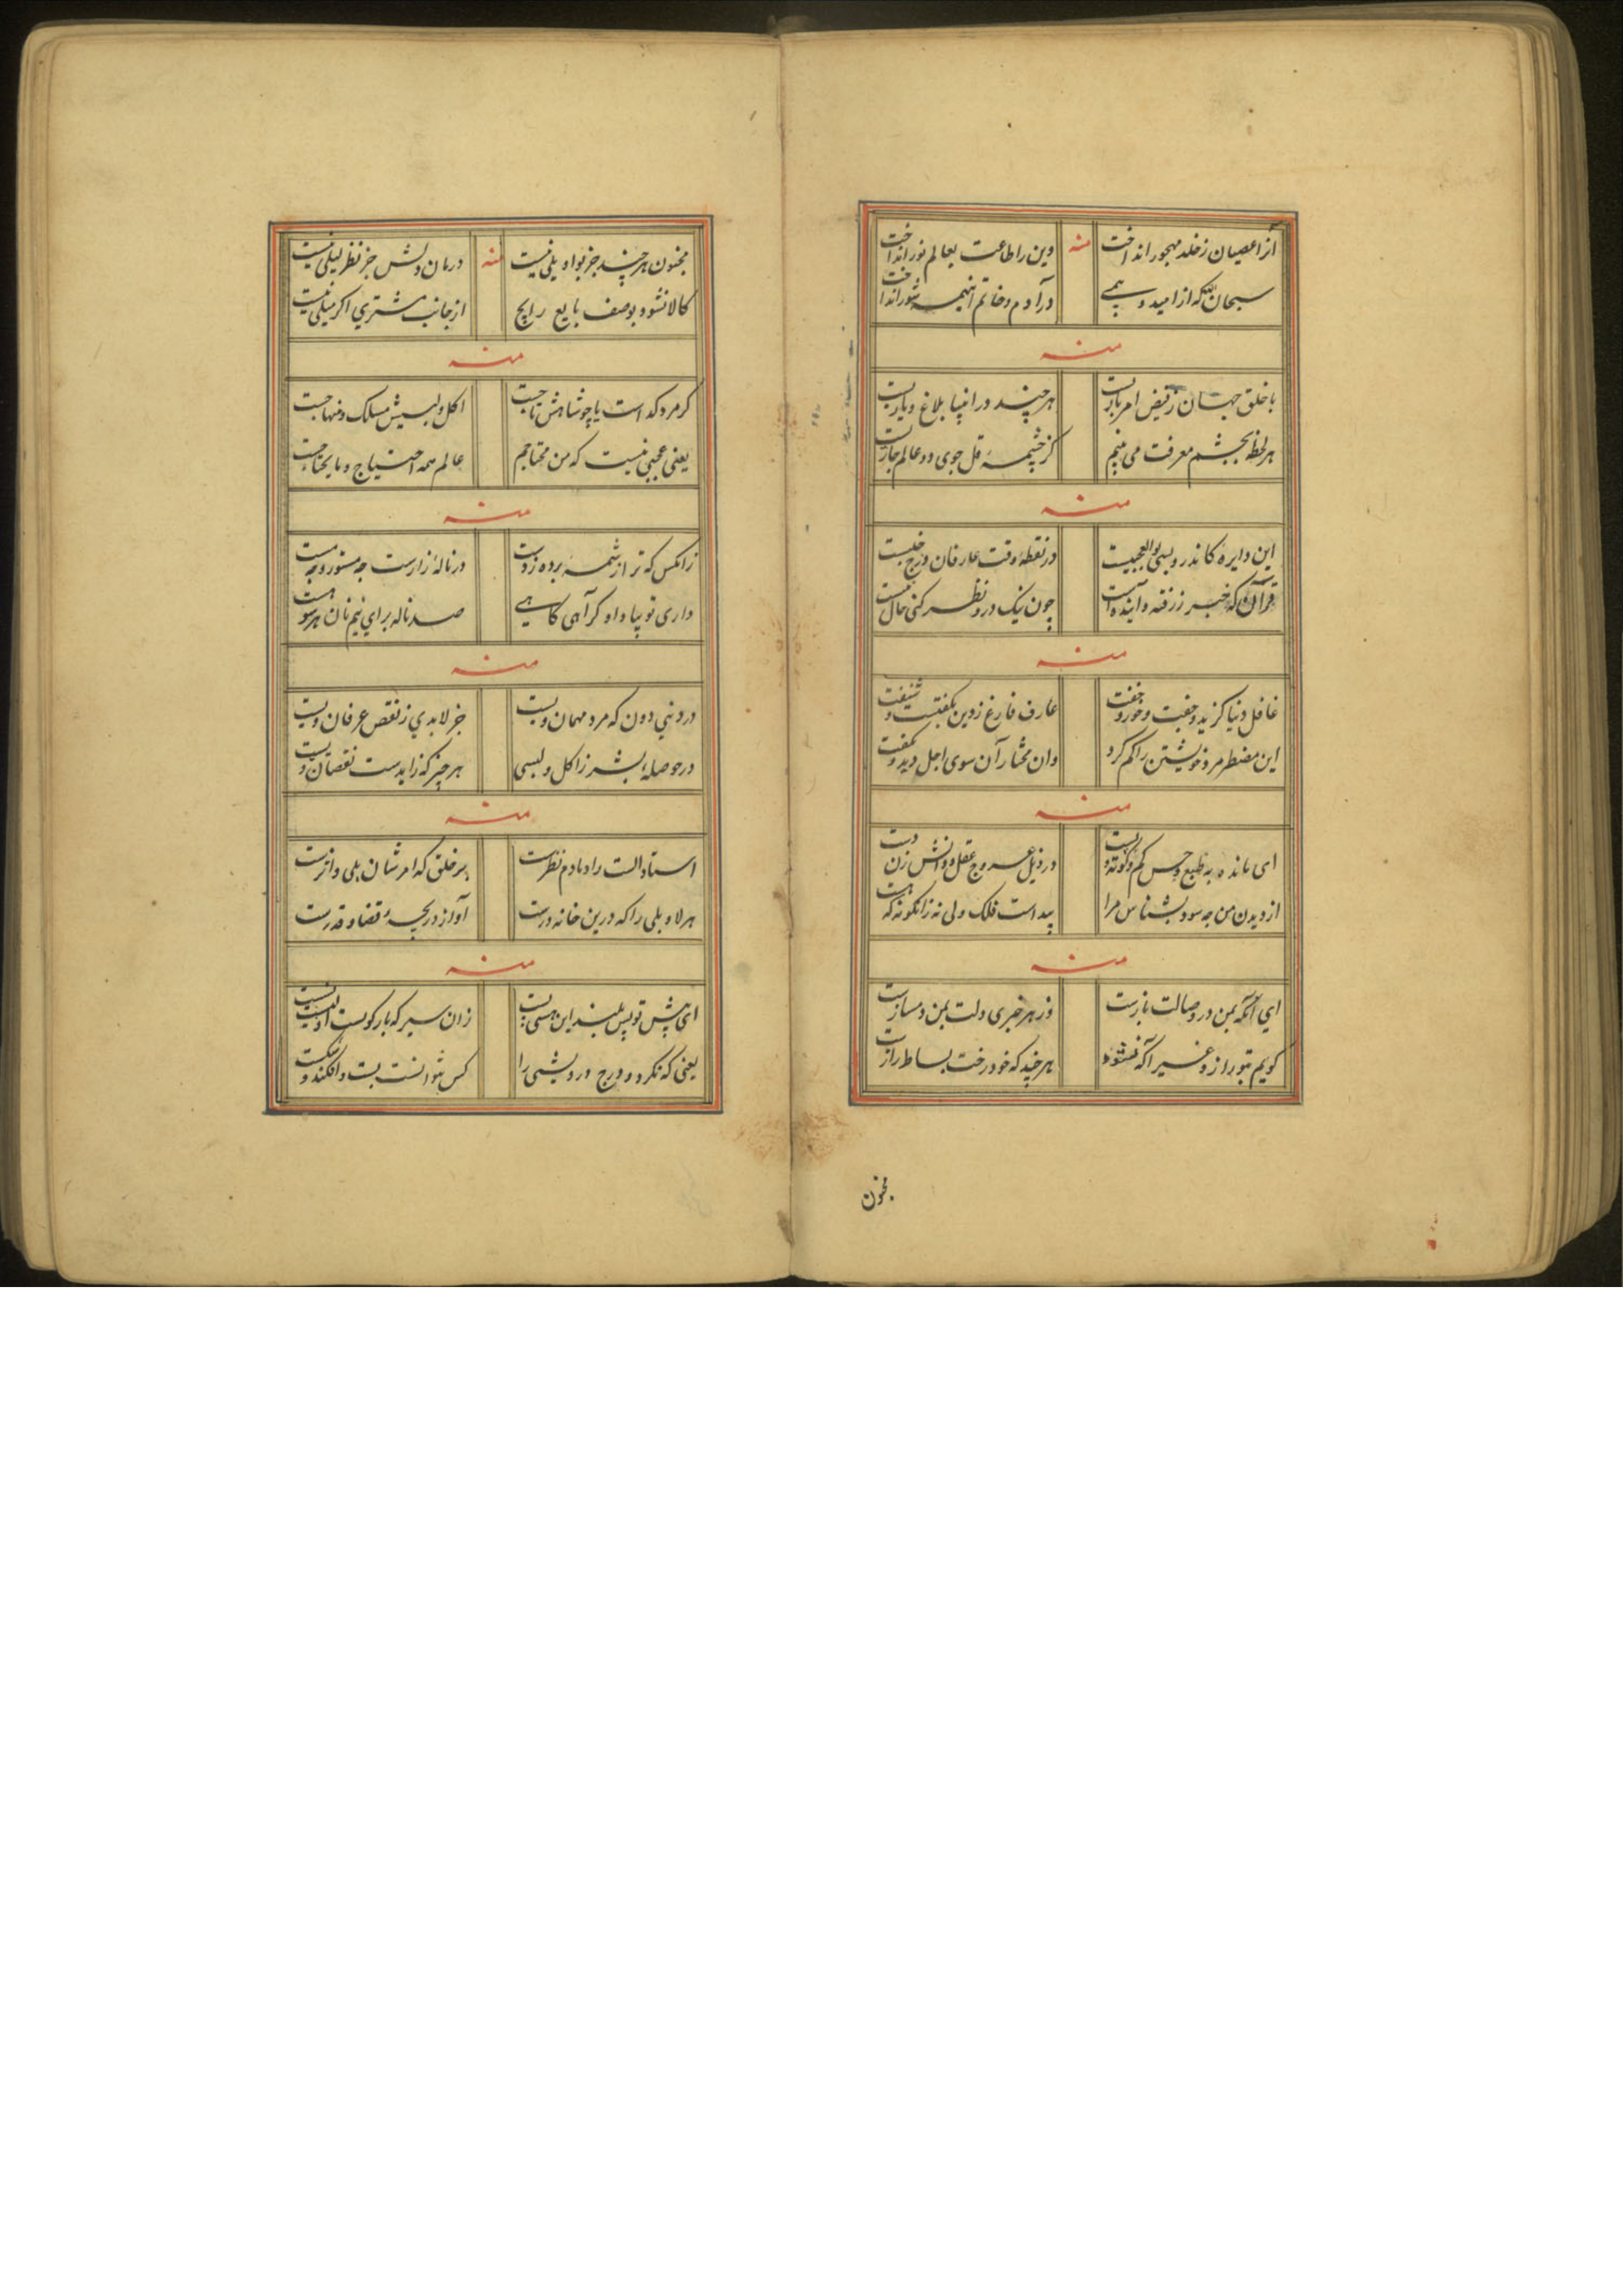 آنرا عصیان ز خلد مهجور انداخت منه وین را طاعت بعالم نور انداخت
سبحان الله که از امید و بیمی در آدم و خاتم اینهمه شور انداخت
منه
با خلق جهان ز فیض امر باریست هر چند در انبیا بلاغ و یاریست
هر لحظه بچشم معرفت می بینم کز چشمهٔ قل جوی دو عالم جاریست
منه
این دایره کاندرو بسی بوالعجبیست در نقطهٔ وقت عارفان درج
قرآن که خبر ز رفته و آینده است چون نیک درو نظر کنی حال
منه
غافل دنیا گزید و جفت و خور و خفت عارف فارغ زدین
این مضطر مرد و خویشتن را گم کرد وان مختار آن سوی اجل دید و گفت
منه
ای مانده به طبع و حس در ذیل عروج عقل و دانش زن دست
از دیدن من چه سود بشناس مرا پیداست فلک ولی نه زانگونه که هست
منه
ای آنکه بمن در وصالت بازست وز هر خبری دلت بمن دمسازست
گویم بتو راز و غیر آگه نشود هر چند که خود رخت بساط رازست
مجنون
مجنون هر چند جز بواویلی نیست منه درمان دلش جز نظر لیلی نیست
کالا نشود بوصف بایع رایج از جانب مشتری اگر میلی نیست
منه
گر مرد گداست یا چو شاهش تاجست اکل و لبسش مسلک و منهاجست
یعنی عجبی نیست که من محتاجم عالم همه احتیاج و ما یحتاجست
منه
زانکس که تر از شمهٔ در نالهٔ زارست چه مستور و چه مست
داری تو بیا داو گر آهی گاهی صد ناله برای نیم نان هر سو هست
منه
در دنیی دون که مرد مهمان ویست جز لابدی ز نقص عرفان ویست
در حوصلهٔ بشر ز اکل و لبسی هر چیز که زایدست نقصان ویست
منه
استاد الست را دمادم نظرست بر خلق که امرشان بلی واترست
هر لا و بلی را که درین خانه درست آواز دریچهٔ قضا و قدرست
منه
ای پیش تو پس بلند این هستی پست زان سیر که بار
یعنی که نکرده درج درویشی را کس نتوانست بست و افکند و شکست